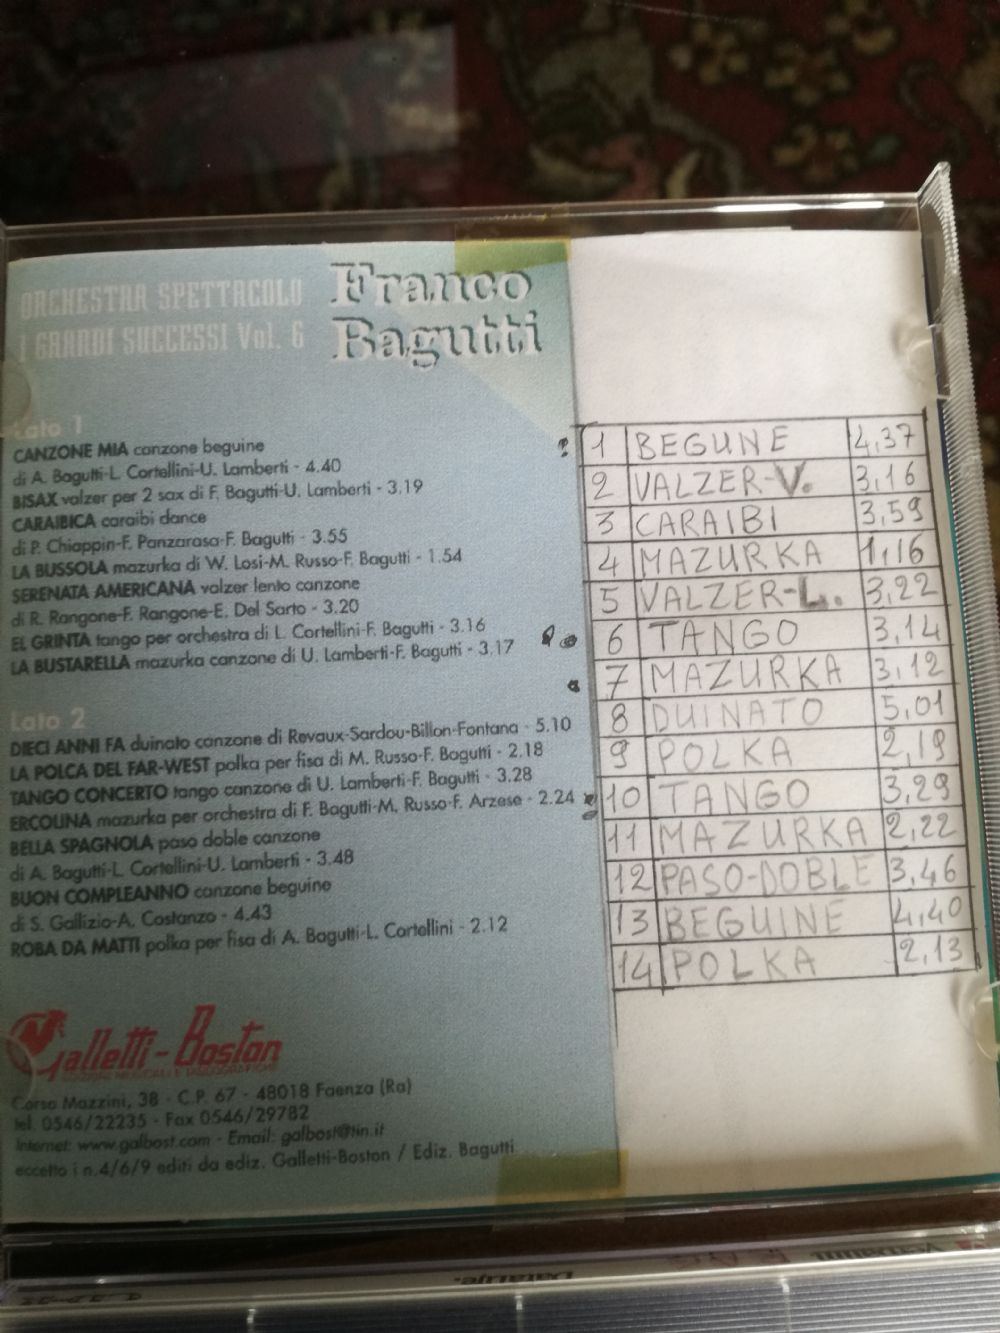 ORCHESTRA SPETTACOLO
I GRANDI SUCCESSI Vol. 6
Franco
Bagutti
Lato 1
CANZONE MIA canzone beguine
di A. Bagutti-L. Cortellini-U. Lamberti - 4.40
BISAX valzer per 2 sax di F. Bagutti-U. Lamberti - 3.19
CARAIBICA caraibi dance
di P. Chiappin-F. Panzarasa-F. Bagutti - 3.55
LA BUSSOLA mazurka di W. Losi-M. Russo-F. Bagutti - 1.54
SERENATA AMERICANA valzer lento canzone
di R. Rangone-F. Rangone-E. Del Sarto - 3.20
EL GRINTA tango per orchestra di L. Cortellini-F. Bagutti - 3.16
LA BUSTARELLA mazurka canzone di U. Lamberti-F. Bagutti - 3.17
Lato 2
DIECI ANNI FA duinato canzone di Revaux-Sardou-Billon-Fontana - 5.10
LA POLCA DEL FAR-WEST polka per fisa di M. Russo-F. Bagutti - 2.18
TANGO CONCERTO tango canzone di U. Lamberti-F. Bagutti - 3.28
ERCOLINA mazurka per orchestra di F. Bagutti-M. Russo-F. Arzese - 2.24
BELLA SPAGNOLA paso doble canzone
di A. Bagutti-L. Cortellini-U. Lamberti - 3.48
BUON COMPLEANNO canzone beguine
di S. Gallizio-A. Costanzo - 4.43
ROBA DA MATTI polka per fisa di A. Bagutti-L. Cortellini - 2.12
Galletti-Boston
EDIZIONI MUSICALI E
Corso Mazzini, 38 - C.P. 67 - 48018 Faenza (Ra)
tel. 0546/22235 - Fax 0546/29782
Internet: www.galbost.com - Email: galbost@tin.it
eccetto i n.4/6/9 editi da ediz. Galletti-Boston / Ediz. Bagutti
1 BEGUNE 4,37
2 VALZER-V. 3,16
3 CARAIBI 3,59
4 MAZURKA 1,16
5 VALZER-L. 3,22
6 TANGO 3,14
7 MAZURKA 3,12
8 DUINATO 5,01
9 POLKA 2,19
10 TANGO 3,29
11 MAZURKA 2,22
12 PASO-DOBLE 3,46
13 BEGUINE 4,40
14 POLKA 2,13